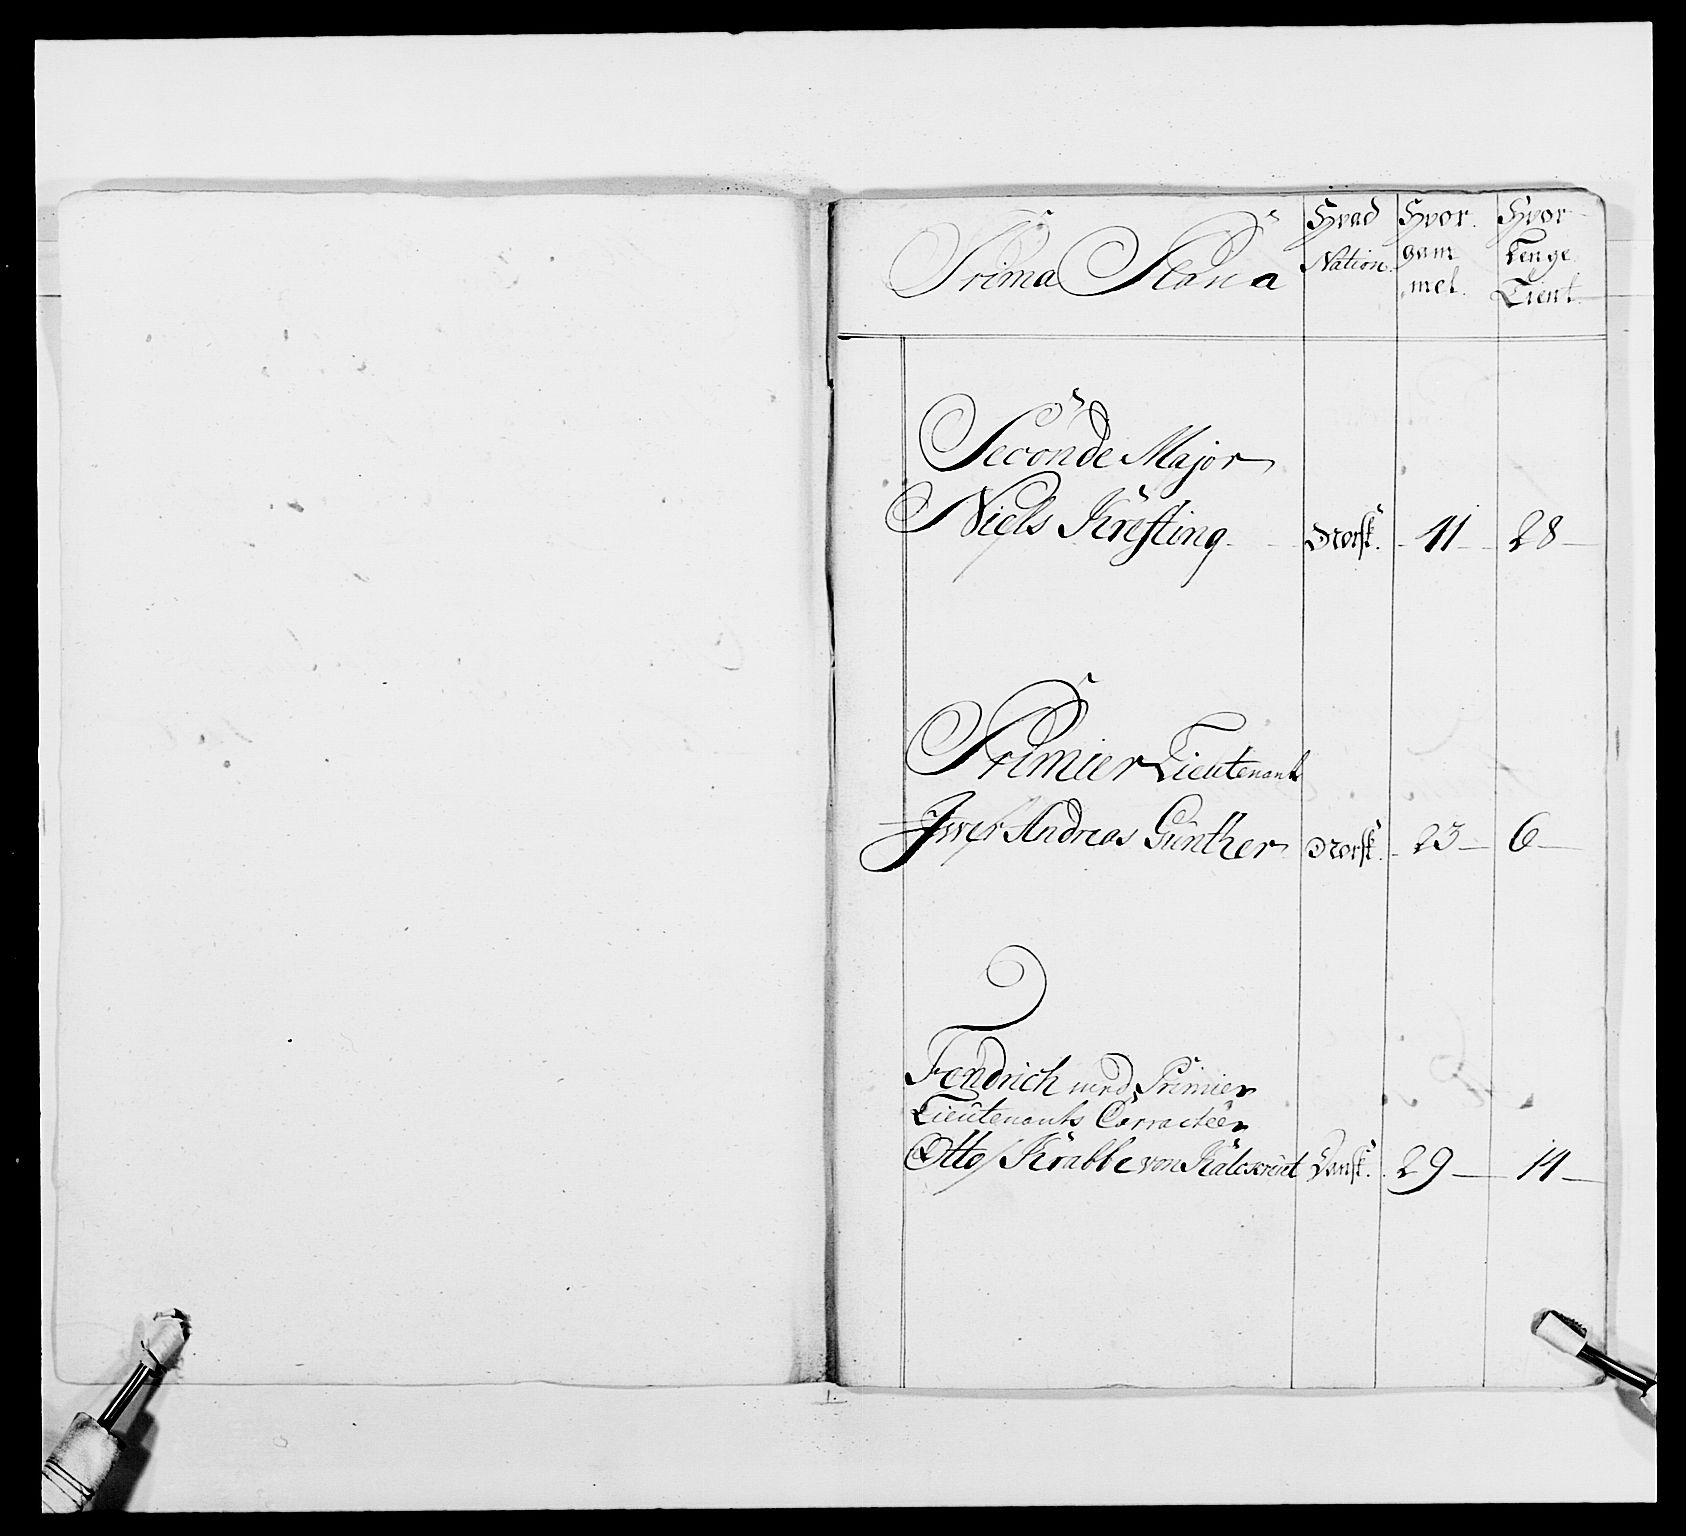 Prima Plana
Hvad Nation.
Hvor gam mel.
Hvor lenge Tient.
Seconde Major
Niels Krefting Norsk. 41 28
Primier Lieutenant
Iwer Andreas Günther Norsk. 23 6
Fendrich med Primier
Lieutenants Carracteer
Otto Krabbe von Dansk. 29 14